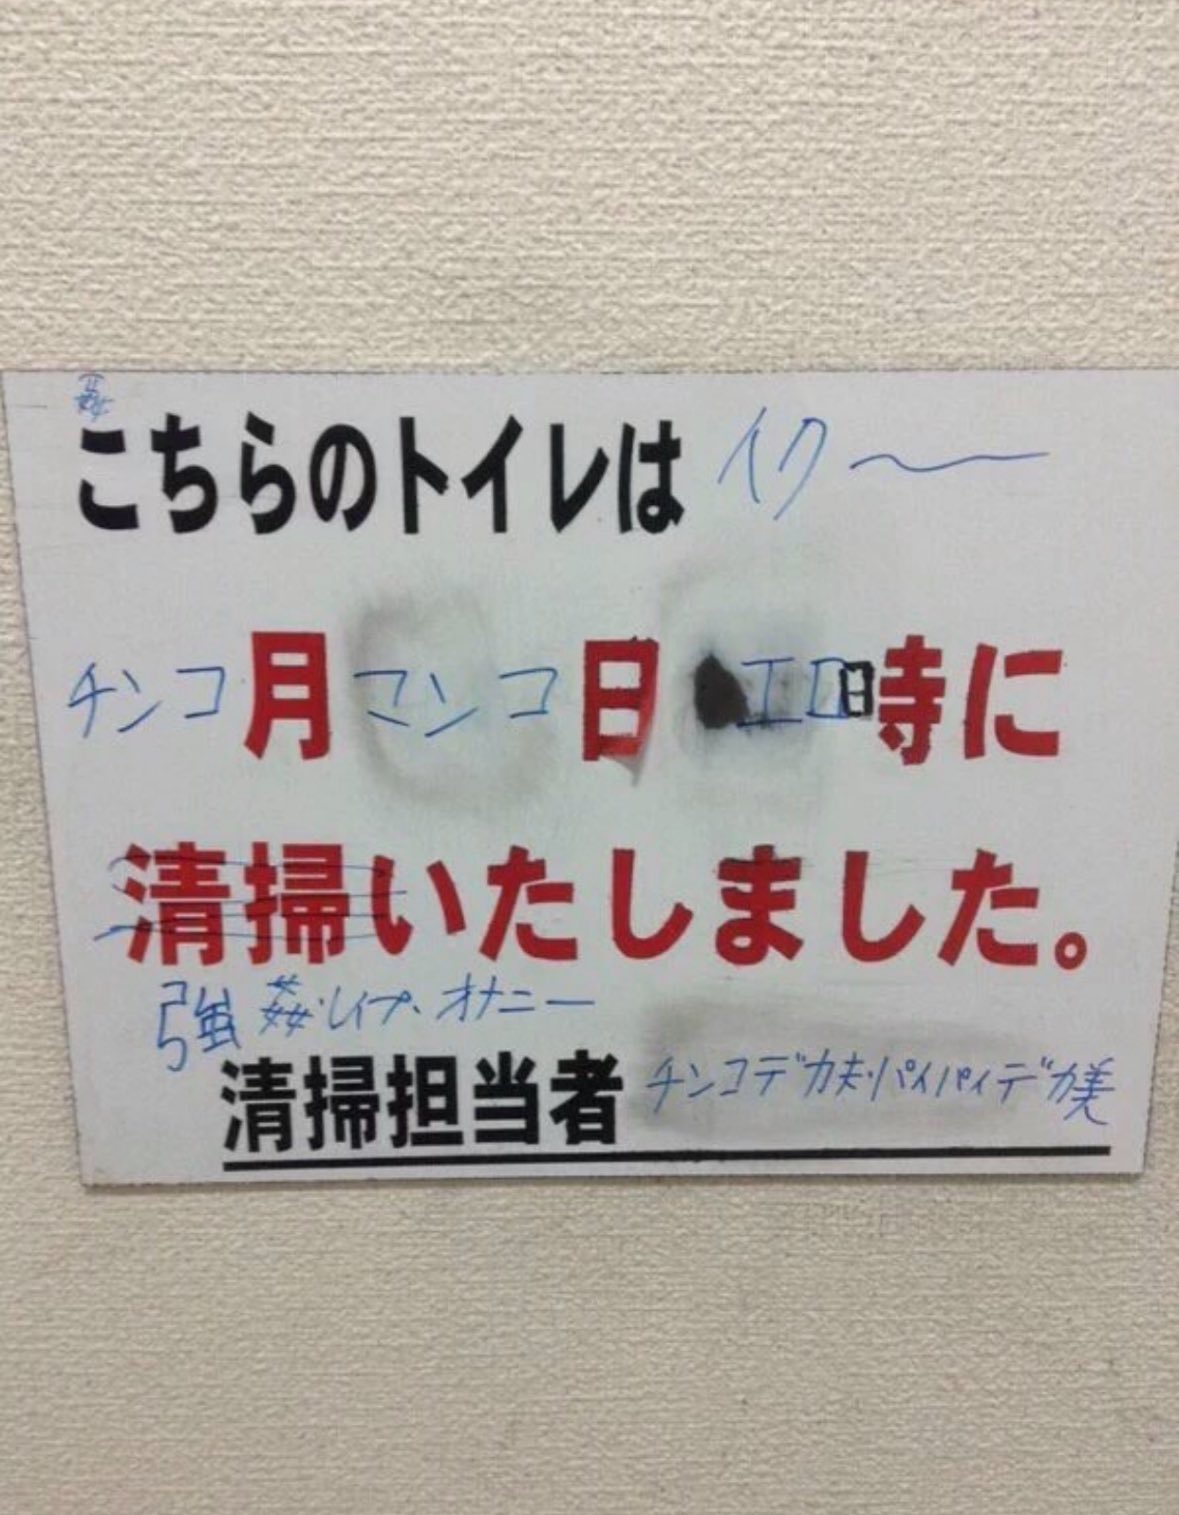 こちらのトイレは イク〜
チンコ月マンコ日 エロ時に
清掃いたしました。
強姦・レイプ・オナニー
清掃担当者 チンコデカ夫・パイパイデカ美